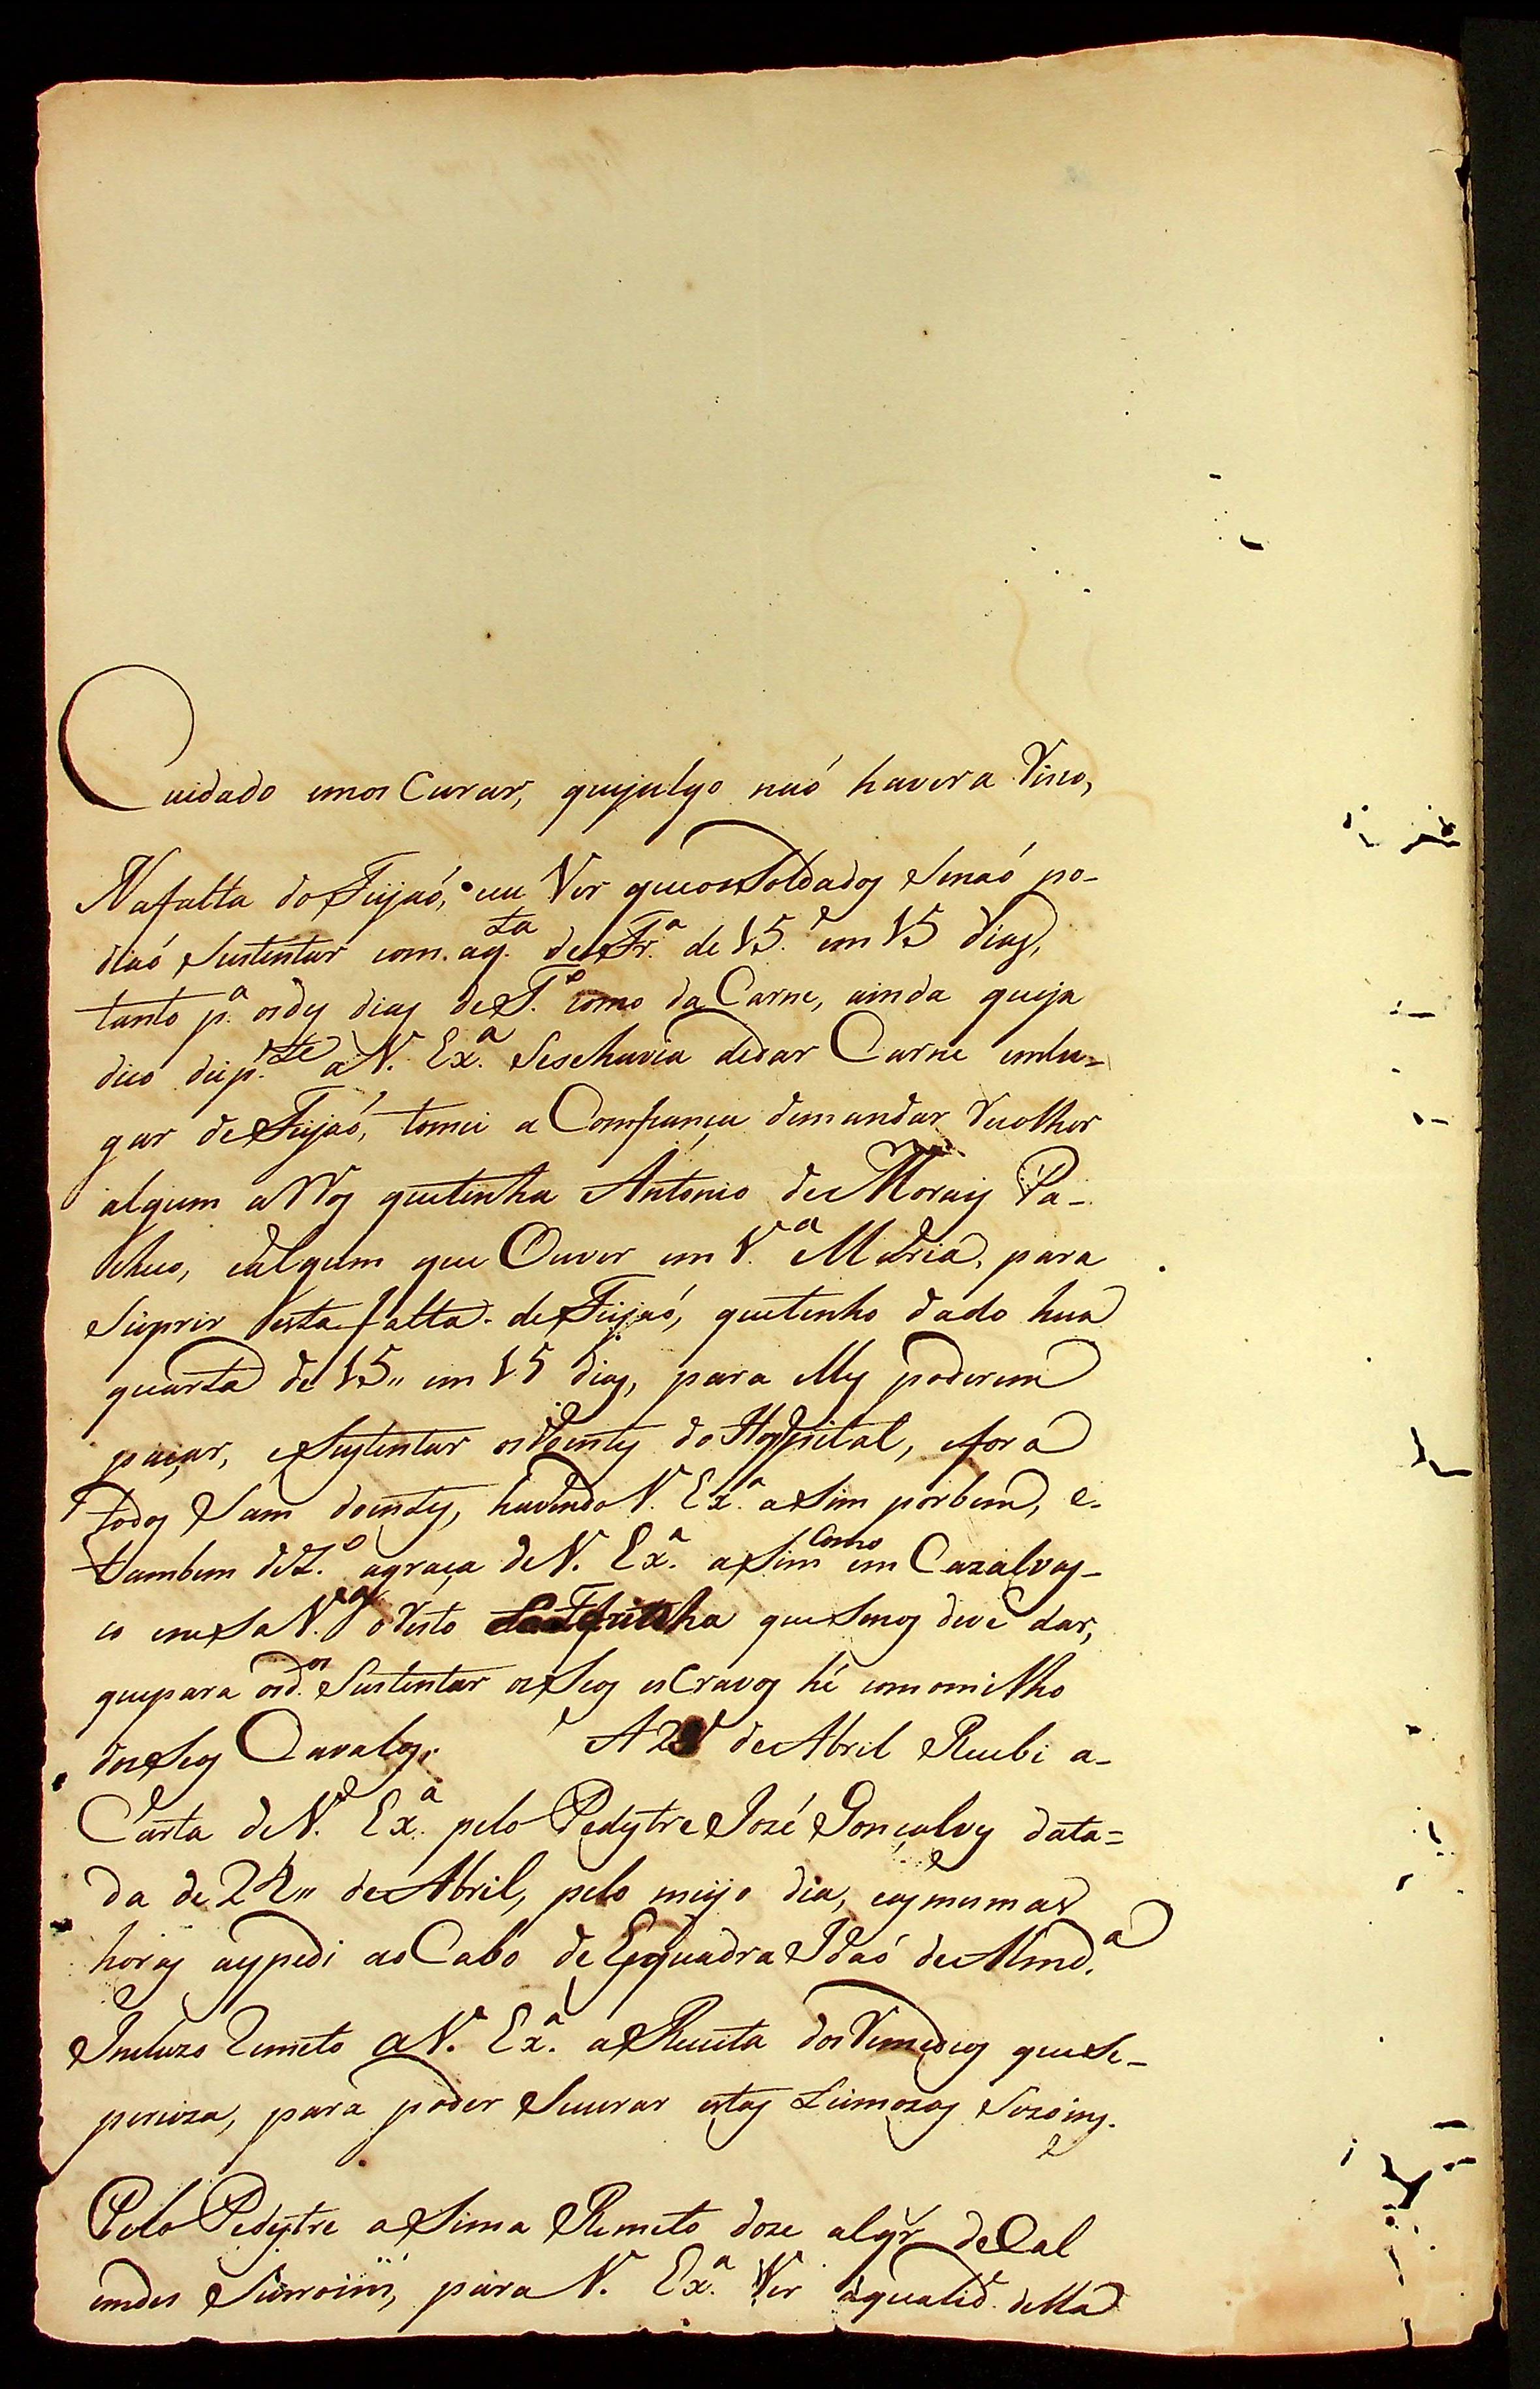 Cuidado emos Curar, quejulgo naó havera Risco,
Nafalta do Feijaó, eu Ver queosSoldados Senaó po-
diaó Sustentar com. aq.ta deFr.a de 15. em 15 dias,
tanto p.a osdez dias deF.o como da Carne, ainda queja
dice dip.te a V. Ex.a Seselhavia dedar Carne emlu-
gar de Feijaó, tomei a Comfiança demandar Recolher
algum aRoz quetinha Antonio de Moraiz Pa-
checo, ealgum que Ouver em V.a Maria, para
Suprir esta falta. de Feijaó, quetenho dado hua
quarta de 15,, em 15 dias, para elles poderem
paçar, eSustentar osdoentes do Hospital, efora
todos Sam doentes, havendo V. Ex.a aSim porbem, e-
tambem det.o agraça deV. Ex.a aSim Como em Cazalvas-
co eneSa V.a oResto da Farinha queSenos deve dar,
quepara osd.os Sustentar osSeos esCravos hé comomilho
dosSeos Cavalos. A 29 deAbril Recebi a-
Carta deV. Ex.a pelo Pedestre José Gonçalves data=
da de 24,, deAbril, pelo meijo dia, easmesmas
horas aspedi aoCabo de Esquadra Joaó deAlmd.a
Incluzo Remeto aV. Ex.a aReceita dosRemedios queSe-
perciza, para poder Scurar estas Leimozas Sezoins.
Pelo Pedestre aSima Remeto doze alq.r deCal
emdes Surroins, para V. Ex.a Ver aqualid.e della